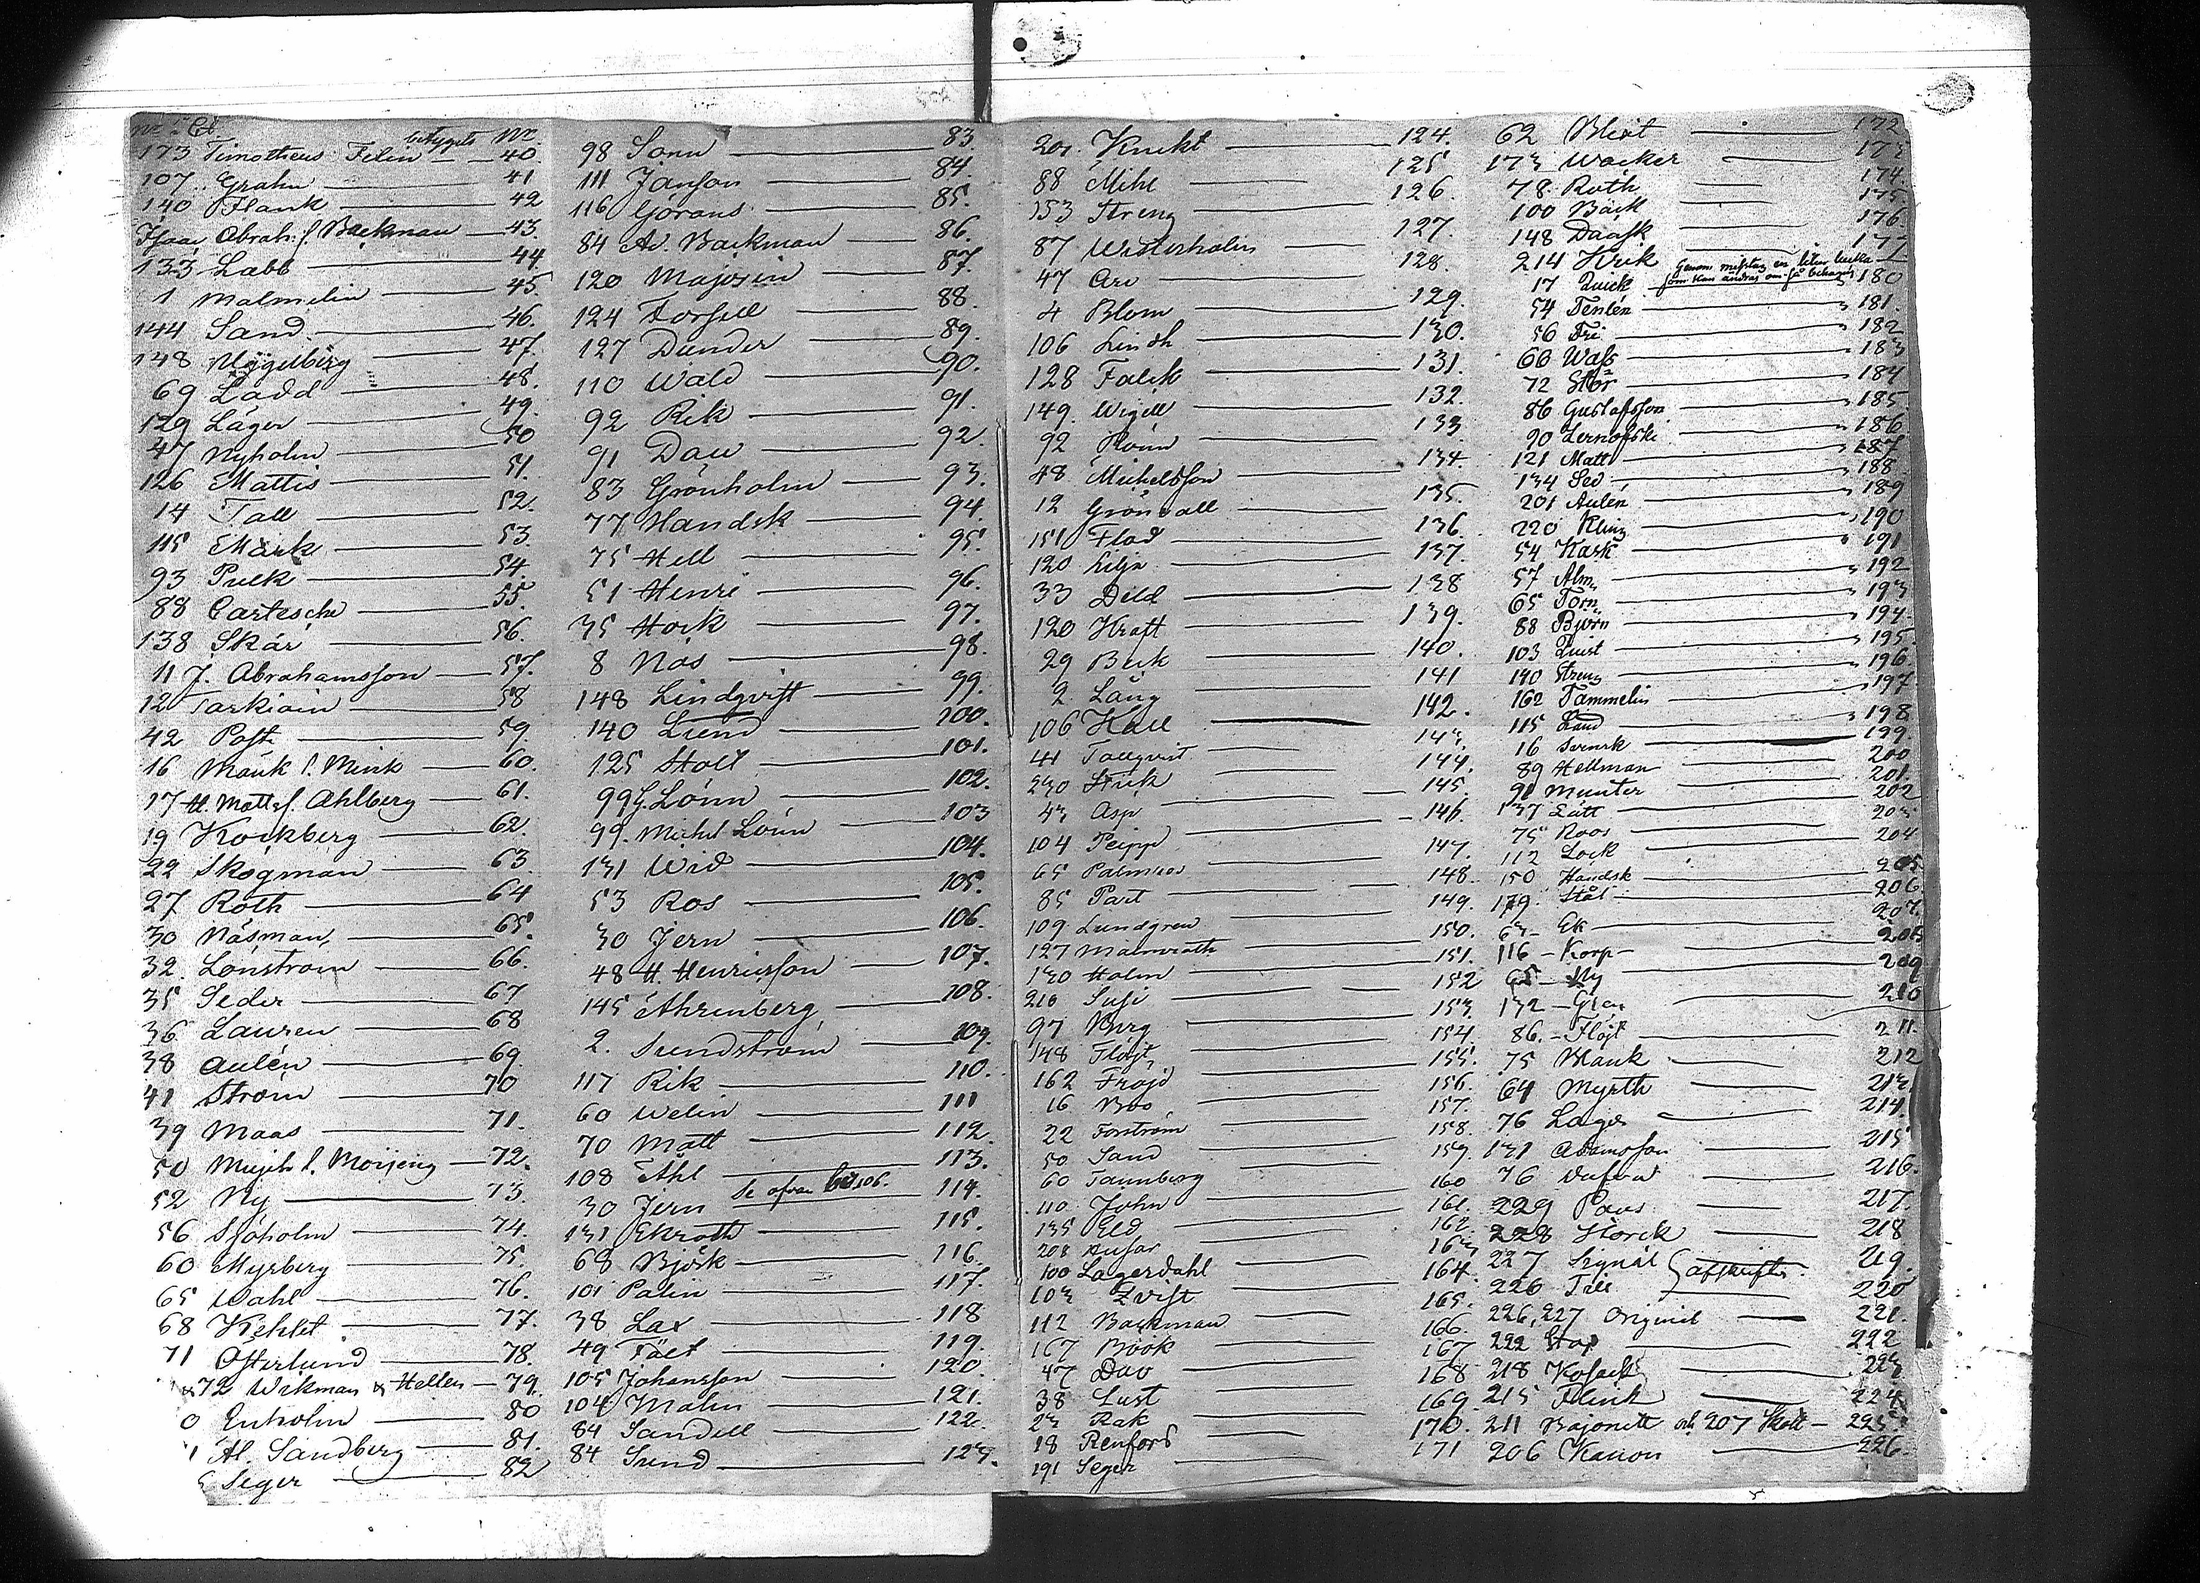 betygets Nr.
173 Timotheus Felin — 40.
107 Grahn — 41
140 Flank — 42
Isaac Abrah. s. Backman — 43.
133 Labb — 44
1 Malmelin — 45
144 Sand — 46.
148 — 47.
69 Ladd — 48.
129 Läger — 49.
47 Nyholm — 50
126 Mattis — 51.
14 Tall — 52.
115 Mark — 53.
93 Pulk — 54.
88 Cartesche — 55.
138 Skär — 56.
11 J. Abrahamsson — 57.
12 Tarkiain — 58
42 Post — 59.
16 Mauk l. Mink — 60.
17 H. Matts s. Ahlberg — 61.
19 Kockberg — 62.
22 Skogman — 63.
27 Roth — 64
30 Näsman — 65.
32. Lönström — 66.
35 Seder — 67
36 Lauren — 68
38 Aulén — 69.
41 Ström — 70
39 Maas — 71.
50 l. — 72.
52 Ny — 73.
56 Sjöholm — 74.
60 Myrberg — 75.
65 Wahl — 76.
68 — 77.
71 Österlund — 78.
72 Wikman & Hellen — 79.
0 Enholm — 80
1 Al. Sandberg — 81.
Seger — 82
98 Sonn — 83
111 Janson — 84.
116 Görans — 85.
84 Ad. Backman — 86.
120 Majosin — 87.
124 Forsell — 88.
127 Dunder — 89.
110 Wald — 90.
92 Rik — 91.
91 Dau — 92.
83 Grönholm — 93.
77 Handsk — 94.
75 Hell — 95.
51 Henri — 96.
35 Hock — 97.
8 Näs — 98.
148 Lindqvist — 99.
140 Lund — 100.
125 Stolt — 101.
99 G. Lönn — 102.
99. Michel Lönn — 103
131 Wid — 104.
53 Ros — 105.
30 Jern — 106.
48 H. Henricsson — 107.
145 Ahrenberg — 108.
2. Sundström — 109.
117 Rik — 110.
60 Welin — 111
70 Matt — 112.
108 Ahl — 113.
30 Jern Se ofvan 106. 114.
131 Ekroth — 115.
68 Björk — 116.
101 Palin — 117.
38 Lax — 118
49 Fält — 119.
105 Johansson — 120.
104 Malm — 121.
84 Sandell — 122.
84 Sund — 123.
201. Knekt — 124.
88 Mihl — 125
153 Streng — 126.
87 Westerholm — 127.
47 Ore — 128.
4 Blom — 129.
106 Lindh — 130.
128 Falck — 131.
149. Wigell — 132.
92 Rönn — 133
48 Michelsson — 134.
12 Grönvall — 135.
151 Flod — 136.
120 Lilja — 137.
33 Deld — 138
120 Kraft — 139.
29 Beck — 140.
2 Lång — 141
106 Hall — 142.
41 Tallqvist — 143.
230 Strik — 144.
43 Asp — 145.
104 Peipp — 146.
65 Palmros — 147.
85 Part — 148.
109 Lundgren — 149.
127 Malmroth — 150.
130 Holm — 151.
210 Susi — 152
97 Berg — 153.
148 Flöjt — 154.
162 Fröjd — 155.
16 Boo — 156.
22 Forström — 157.
50 Sand — 158.
60 Tannberg — 159.
110 John — 160
135 Eld — 161.
208 Husar — 162.
100 Lagerdahl — 163
103 Qvist — 164.
112 Backman — 165.
167 Böök — 166.
47 Duv — 167
38 Lust — 168
23 Rak — 169.
18 Renfors — 170.
191 Seger — 171
62 Blixt — 172.
173 Wacker — 173
78 Roth — 174.
100 Bäck — 175
148 Daask — 176.
214 Hvik — 177
17 Quick 180
54 Tenlén — 181.
56 Fri — 182
60 Wass — 183
72 Stör — 184
86 Gustafsson — 185.
90 Zernofski — 186
121 Matt — 187
134 Sed — 188
201 Aulén — 189
220 Kling — 190
54 Kask — 191
57 Alm — 192
65 Torn — 193
88 Björn — 194.
103 Quist — 195.
140 Streng — 196.
162 Tammelin — 197
115 Rund — 198
16 Svensk — 199.
89 Hellman — 200
91 Munter — 201.
137 Lätt — 202
75 Roos — 203
112 Lock — 204
150 Handsk — 205.
179 Stål — 206.
63 — Ek — 207.
116 — Korp — 208
65 — Ny — 209
132 — Glan — 210
86. — Flöjt — 211.
75 Mauk — 212
64 Myrth — 213.
76 Lager — 214
131 Adamsson — 215
76 Dufva — 216.
229 Paus — 217.
228 Storck — 218.
227 Signal } afskrifter. 219.
226 Till — 220
226, 227 Original — 221.
222 Stop — 222
218 Kosack — 223
215 Flink — 224
211 Bajonett och 207 Skott — 225
206 Kanon — 226.